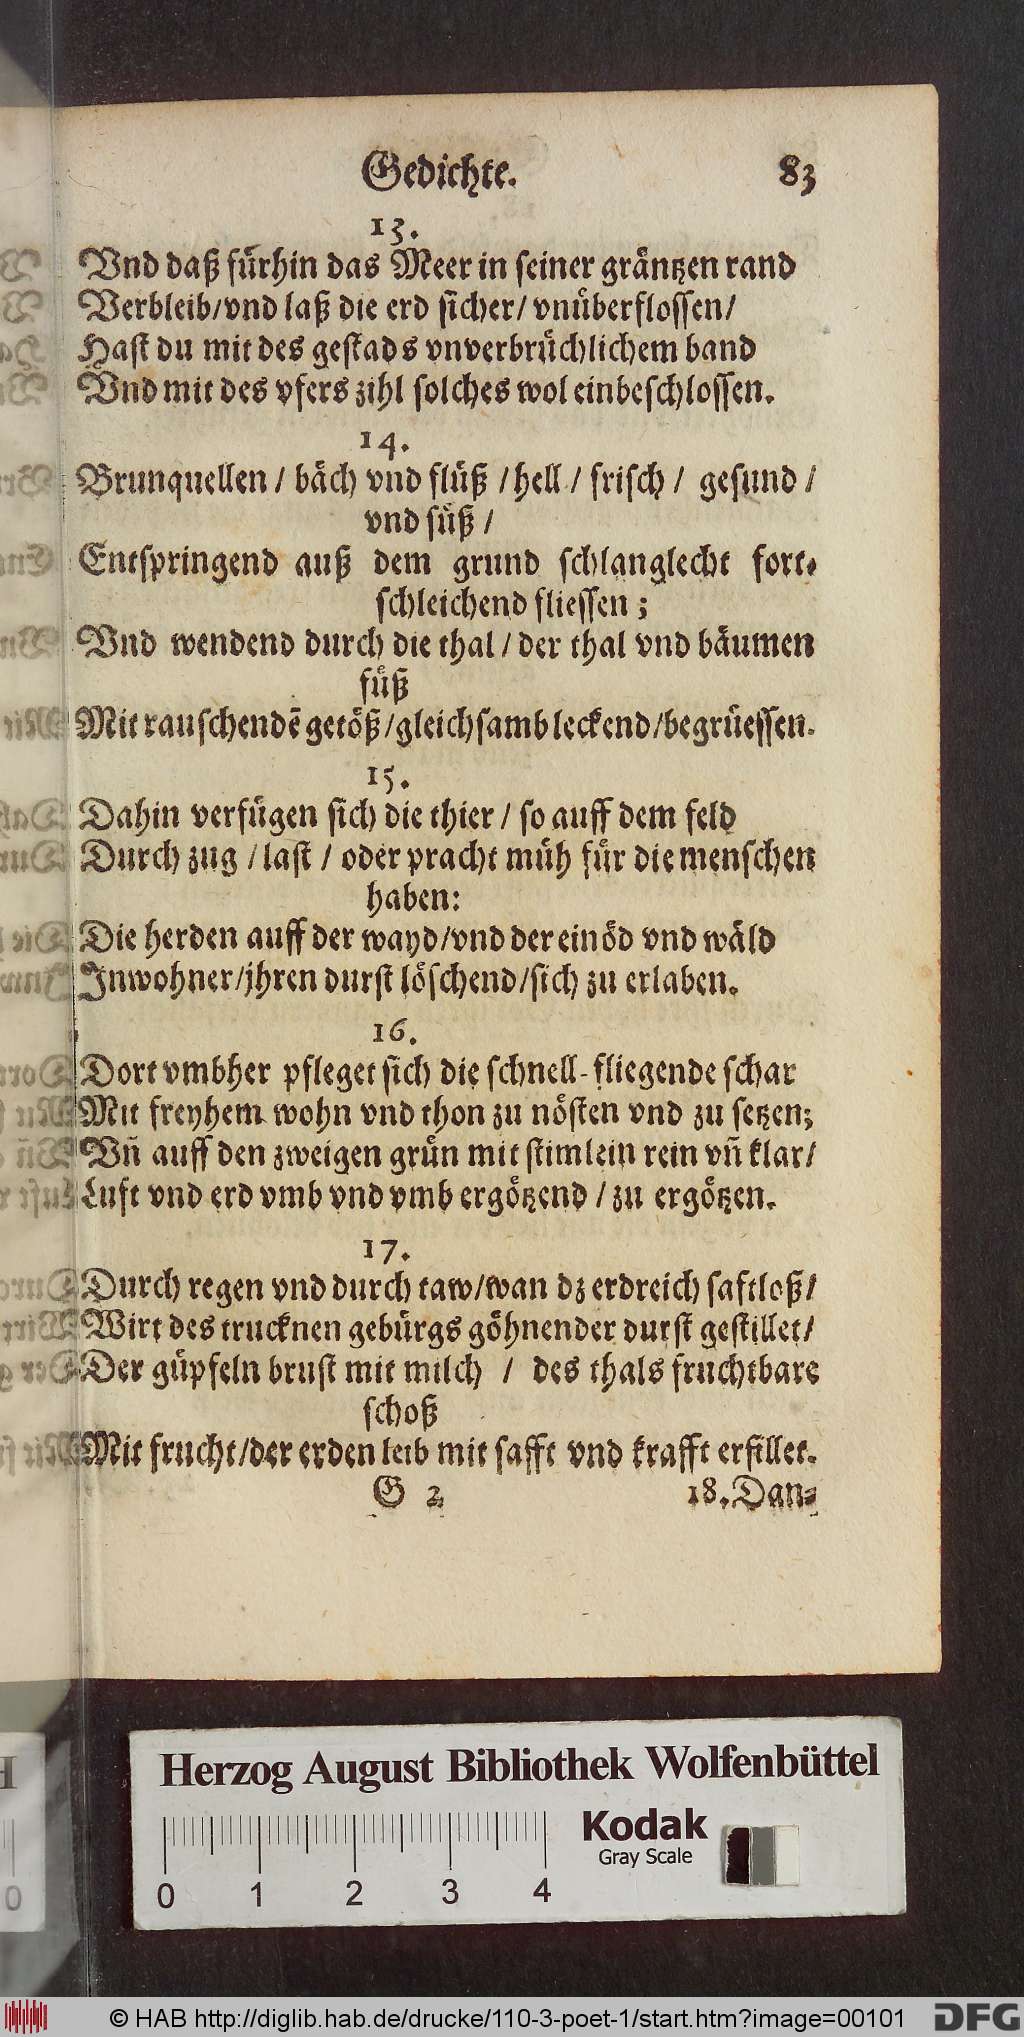 Gedichte. 83
13.
Vnd daß fürhin das Meer in seiner gräntzen rand
Verbleib/vnd laß die erd sicher/ vnüberflossen/
Hast du mit des gestads vnverbrüchlichem band
Vnd mit des vfers zihl solches wol einbeschlossen.
14.
Brunquellen / bäch vnd flüß / hell / frisch / gesund /
vnd süß /
Entspringend auß dem grund schlanglecht fort-
schleichend fliessen ;
Vnd wendend durch die thal / der thal vnd bäumen
füß
Mit rauschendē getöß/gleichsamb leckend/begrüessen.
15.
Dahin verfügen sich die thier / so auff dem feld
Durch zug / last / oder pracht müh für die menschen
haben:
Die herden auff der wayd/vnd der einöd vnd wäld
Inwohner/jhren durst löschend/sich zu erlaben.
16.
Dort vmbher pfleget sich die schnell-fliegende schar
Mit freyhem wohn vnd thon zu nösten vnd zu setzen;
Vñ auff den zweigen grün mit stimlein rein vñ klar/
Luft vnd erd vmb vnd vmb ergötzend / zu ergötzen.
17.
Durch regen vnd durch taw/wan dz erdreich saftloß/
Wirt des trucknen gebürgs göhnender durst gestillet/
Der güpfeln brust mit milch / des thals fruchtbare
schoß
Mit frucht/der erden leib mit safft vnd krafft erfillet.
G 2 18. Dan-
Herzog August Bibliothek Wolfenbüttel
Kodak
Gray Scale
0 1 2 3 4
0
© HAB http://diglib.hab.de/drucke/110-3-poet-1/start.htm?image=00101
DFG